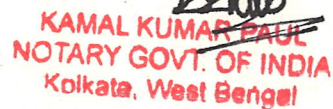 KAMAL KUMAR PAUL
NOTARY GOVT. OF INDIA
Kolkata, West Bengal